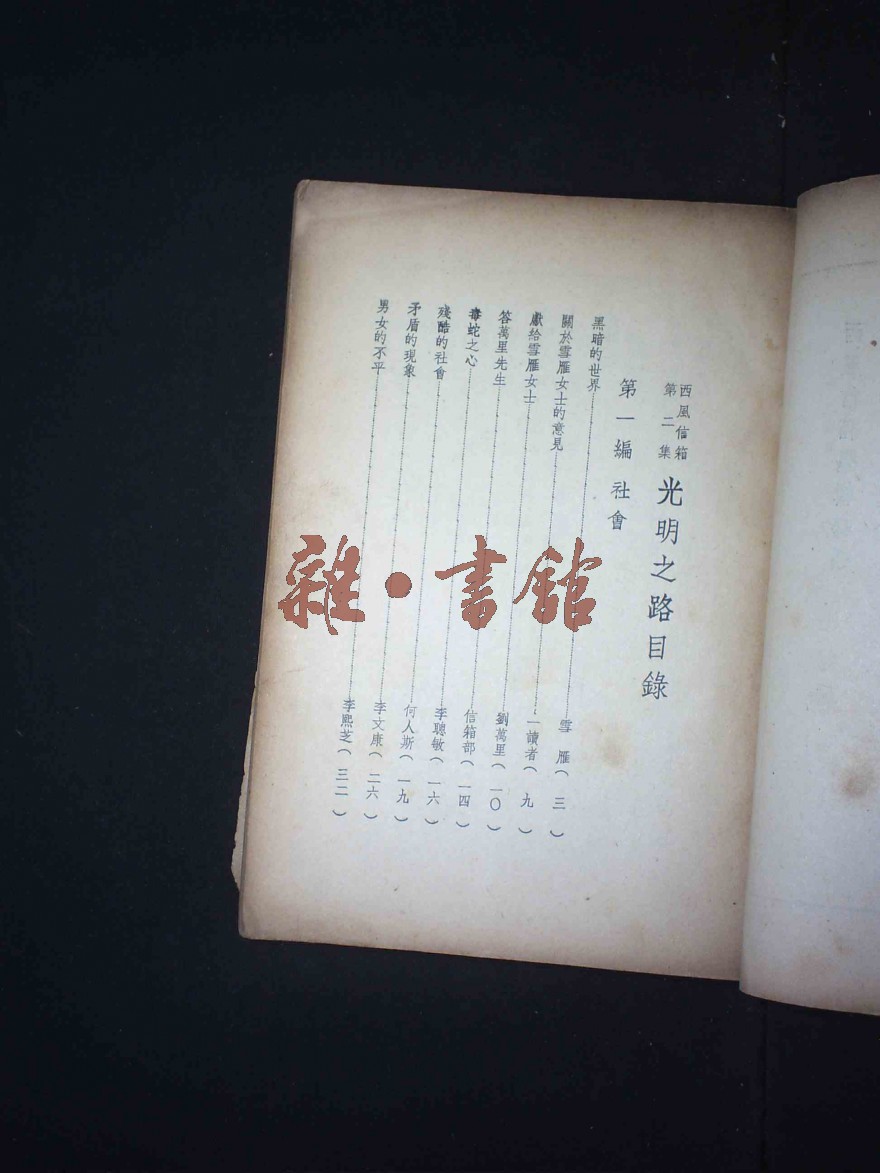 西風信箱
第二集
光明之路目錄
第一編 社會
黑暗的世界 雪雁(三)
關於雪雁女士的意見 一讀者(九)
獻給雪雁女士 劉萬里(一〇)
答萬里先生 信箱部(一四)
毒蛇之心 李聰敏(一六)
殘酷的社會 何人斯(一九)
矛盾的現象 李文康(二六)
男女的不平 李熙芝(三二)
雜·書館